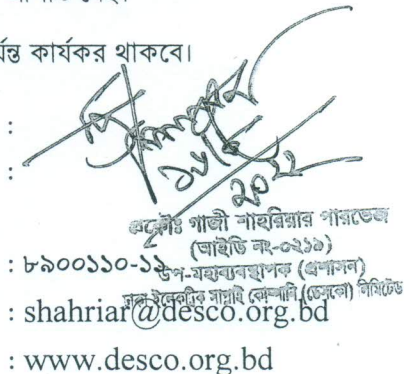 র্যন্ত কার্যকর থাকবে।
:
:
প্রকৌঃ গাজী শাহরিয়ার পারভেজ
(আইডি নং-০২১৯)
: ৮৯০০১১০-১১
উপ-মহাব্যবস্থাপক (প্রশাসন)
ঢাকা ইলেকট্রিক সাপ্লাই কোম্পানি (ডেসকো) লিমিটেড
: shahriar@desco.org.bd
: www.desco.org.bd